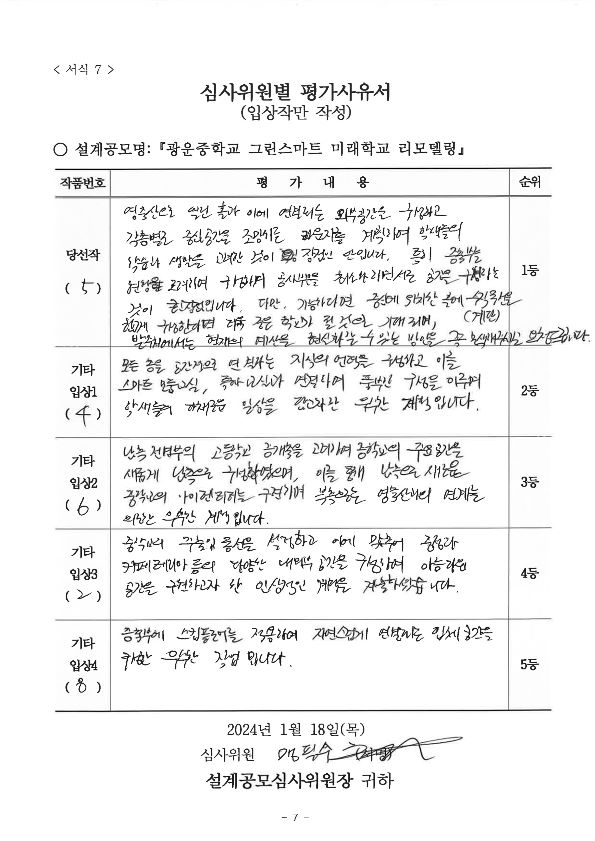 < 서식 7 >
심사위원별 평가사유서
(입상작만 작성)
○ 설계공모명: 『광운중학교 그린스마트 미래학교 리모델링』
작품번호 평 가 내 용 순위
당선작
( 5 )
영축산으로 열린 축과 이에 연결되는 외부공간을 구성하고
각층별로 중심공간을 조망하는 라운지를 계획하여 학생들의
학습과 생활을 고려한 것이 장점인 안입니다. 특히 증축부를
것이 장점입니다. 다만, 가능하다면
함께 구성한다면 더욱 좋은 학교가 될 것으로 기대되며, (계단)
발주처에서는 현재의 예산을 현실화할 수 있는 방안을 꼭 검색해주시길 요청드립니다.
1등
기타
입상1
( 4 )
모든 층을 입체적으로 연결하는 지식의 언덕을 구성하고 이를
스마트 모둠교실, 홈베이스와 연결하여 풍부한 구성을 이루며
학생들의 일상을 우수한 계획입니다.
2등
기타
입상2
( 6 )
남측 전면부의 고등학교 공개축을 고려하여 중학교의 주요공간을
새롭게 남측으로 구성하였으며, 이를 통해 남측으로 새로운
중학교의 아이덴티티를 구현하며 북측으로는 영축산과의 연계를
의도한 우수한 계획입니다.
3등
기타
입상3
( 2 )
중학교의 주출입 동선을 설정하고 이에 맞추어 중정과
카페테리아 등의 다양한 내외부 공간을 구성하여
공간을 구현하고자 한 인상적인 계획을 제출하였습니다.
4등
기타
입상4
( 8 )
증축부에 스킵플로어를 적용하여 자연스럽게 연결되는 입체공간을
구현한 우수한 작업입니다.
5등
2024년 1월 18일(목)
심사위원 맹필수
설계공모심사위원장 귀하
- 7 -